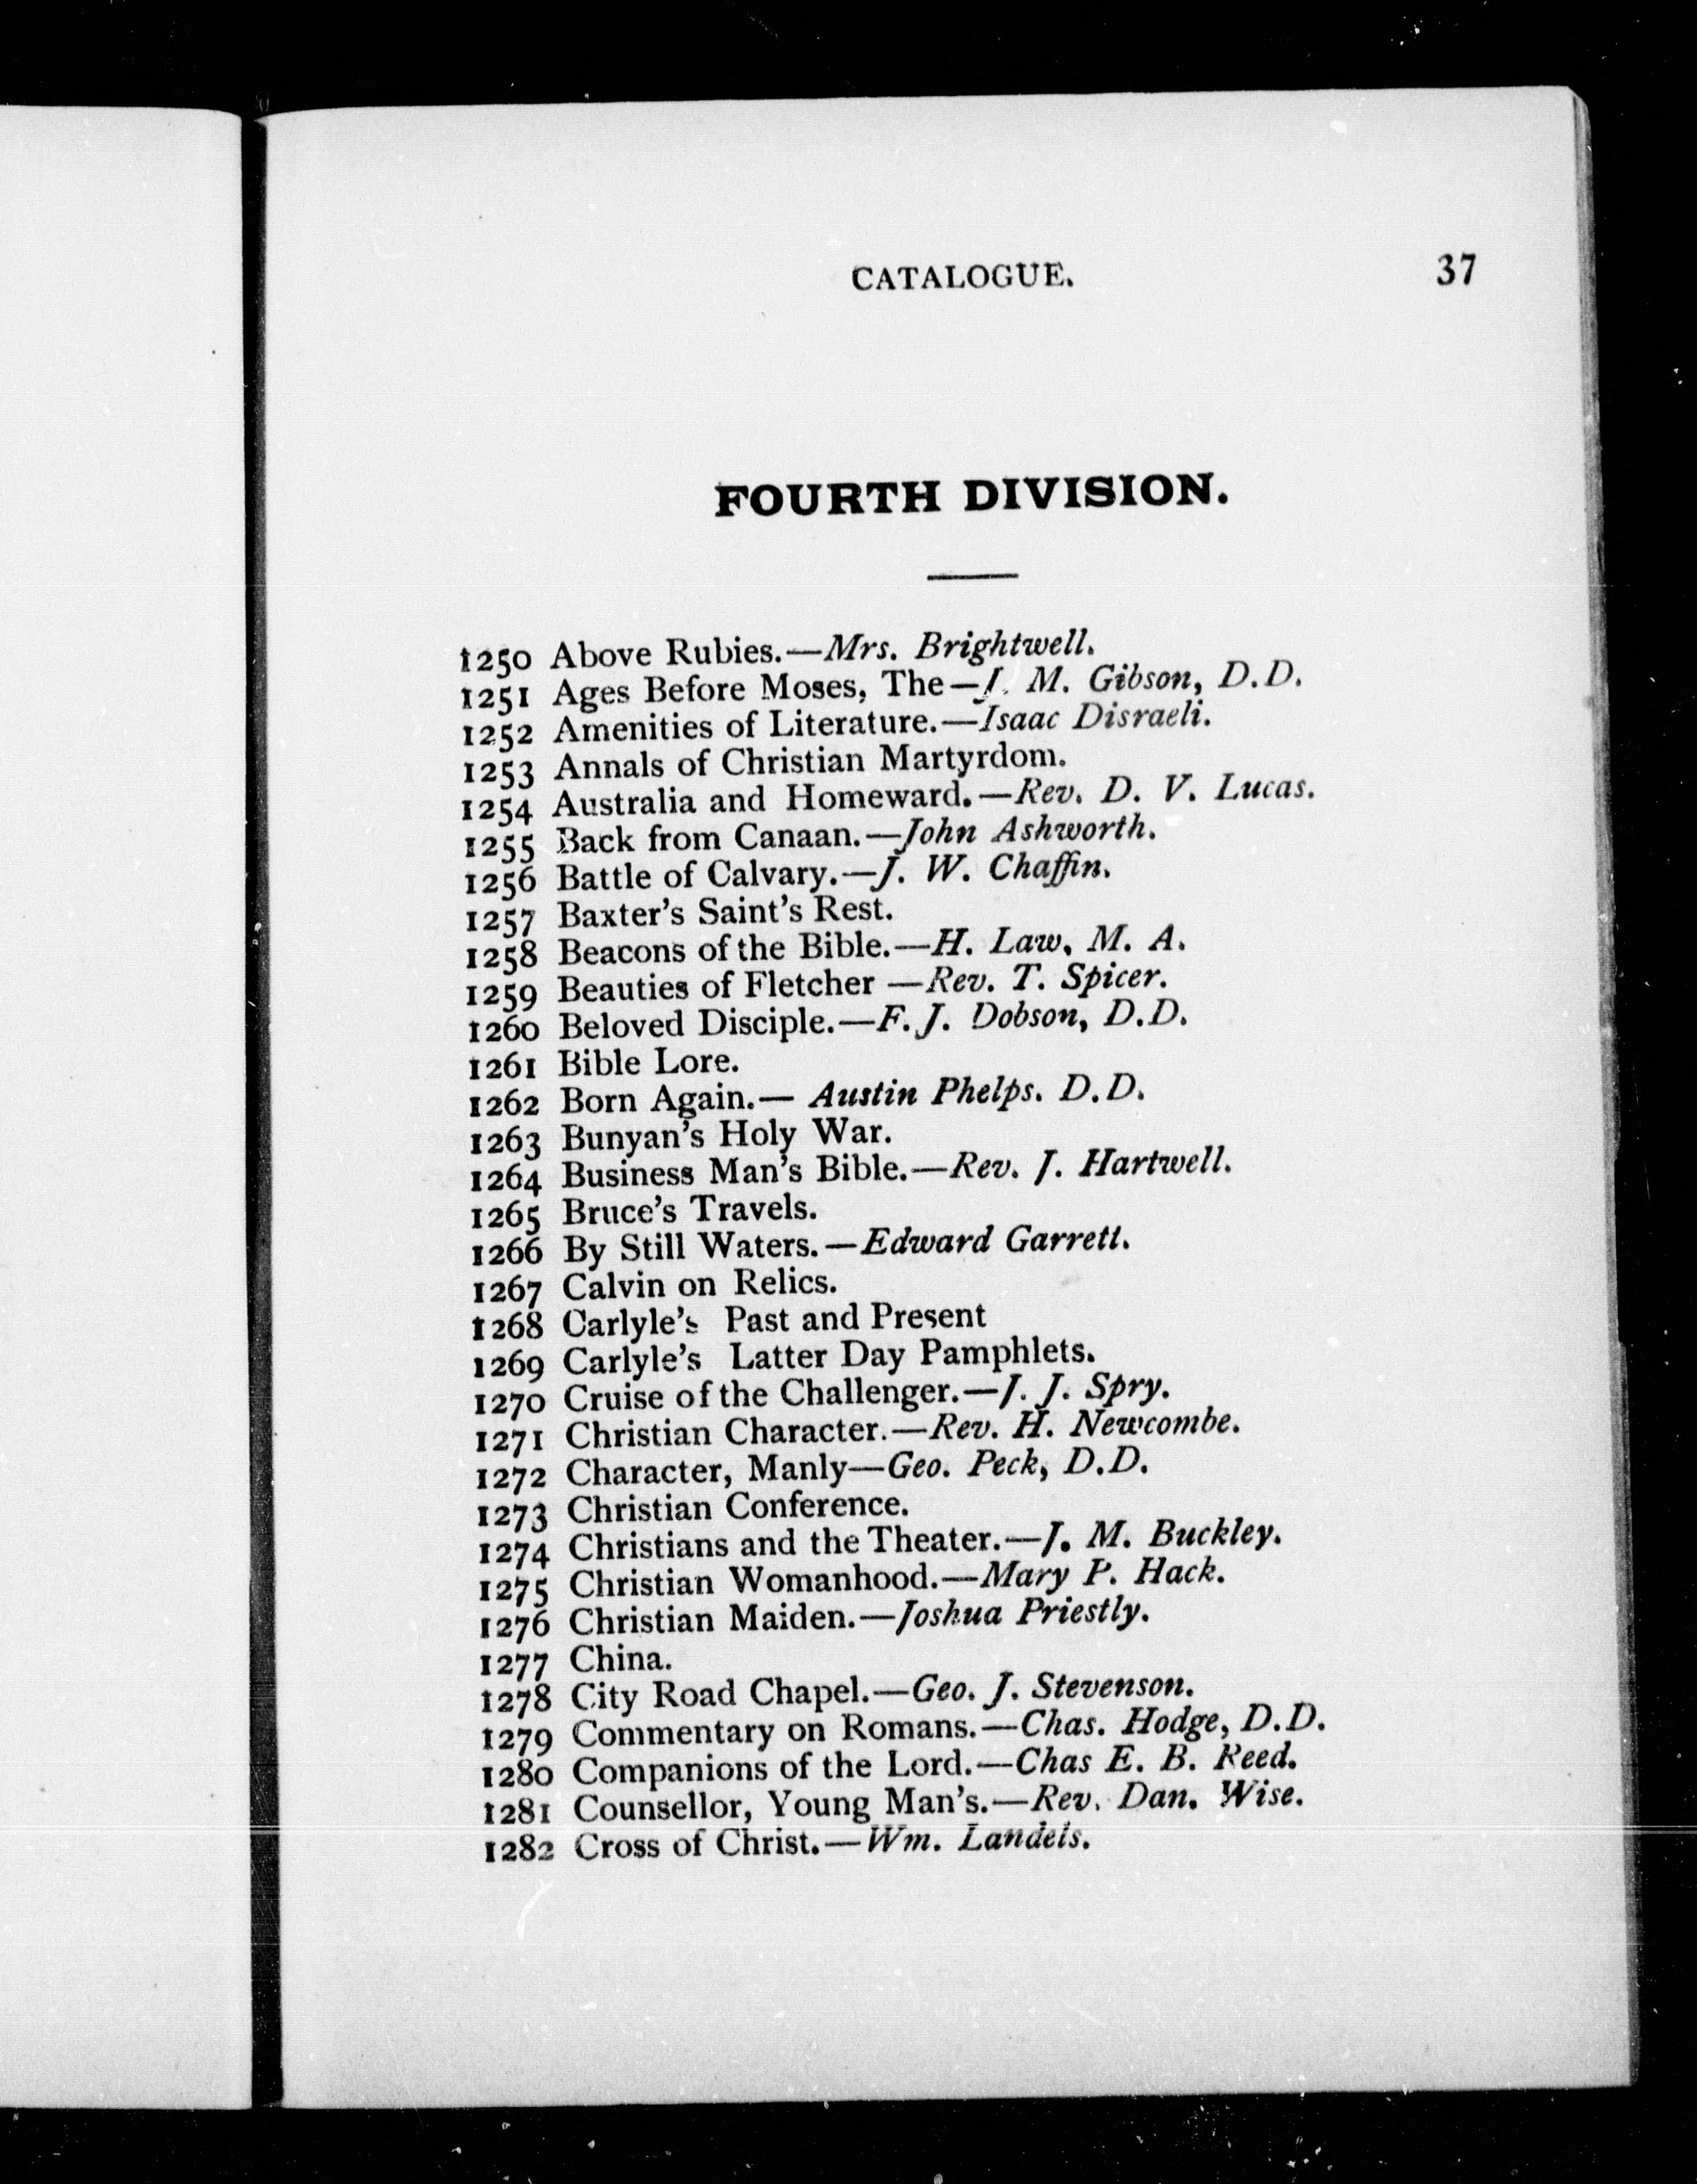 CATALOGUE. 37
FOURTH DIVISION.
1250 Above Rubies.—Mrs. Brightwell.
1251 Ages Before Moses, The—J. M. Gibson, D.D.
1252 Amenities of Literature.—Isaac Disraeli.
1253 Annals of Christian Martyrdom.
1254 Australia and Homeward.—Rev. D. V. Lucas.
1255 Back from Canaan.—John Ashworth.
1256 Battle of Calvary.—J. W. Chaffin.
1257 Baxter's Saint's Rest.
1258 Beacons of the Bible.—H. Law, M. A.
1259 Beauties of Fletcher —Rev. T. Spicer.
1260 Beloved Disciple.—F. J. Dobson, D.D.
1261 Bible Lore.
1262 Born Again.— Austin Phelps. D.D.
1263 Bunyan's Holy War.
1264 Business Man's Bible.—Rev. J. Hartwell.
1265 Bruce's Travels.
1266 By Still Waters.—Edward Garrett.
1267 Calvin on Relics.
1268 Carlyle's Past and Present
1269 Carlyle's Latter Day Pamphlets.
1270 Cruise of the Challenger.—J. J. Spry.
1271 Christian Character.—Rev. H. Newcombe.
1272 Character, Manly—Geo. Peck, D.D.
1273 Christian Conference.
1274 Christians and the Theater.—J. M. Buckley.
1275 Christian Womanhood.—Mary P. Hack.
1276 Christian Maiden.—Joshua Priestly.
1277 China.
1278 City Road Chapel.—Geo. J. Stevenson.
1279 Commentary on Romans.—Chas. Hodge, D.D.
1280 Companions of the Lord.—Chas E. B. Reed.
1281 Counsellor, Young Man's.—Rev. Dan. Wise.
1282 Cross of Christ.—Wm. Landels.